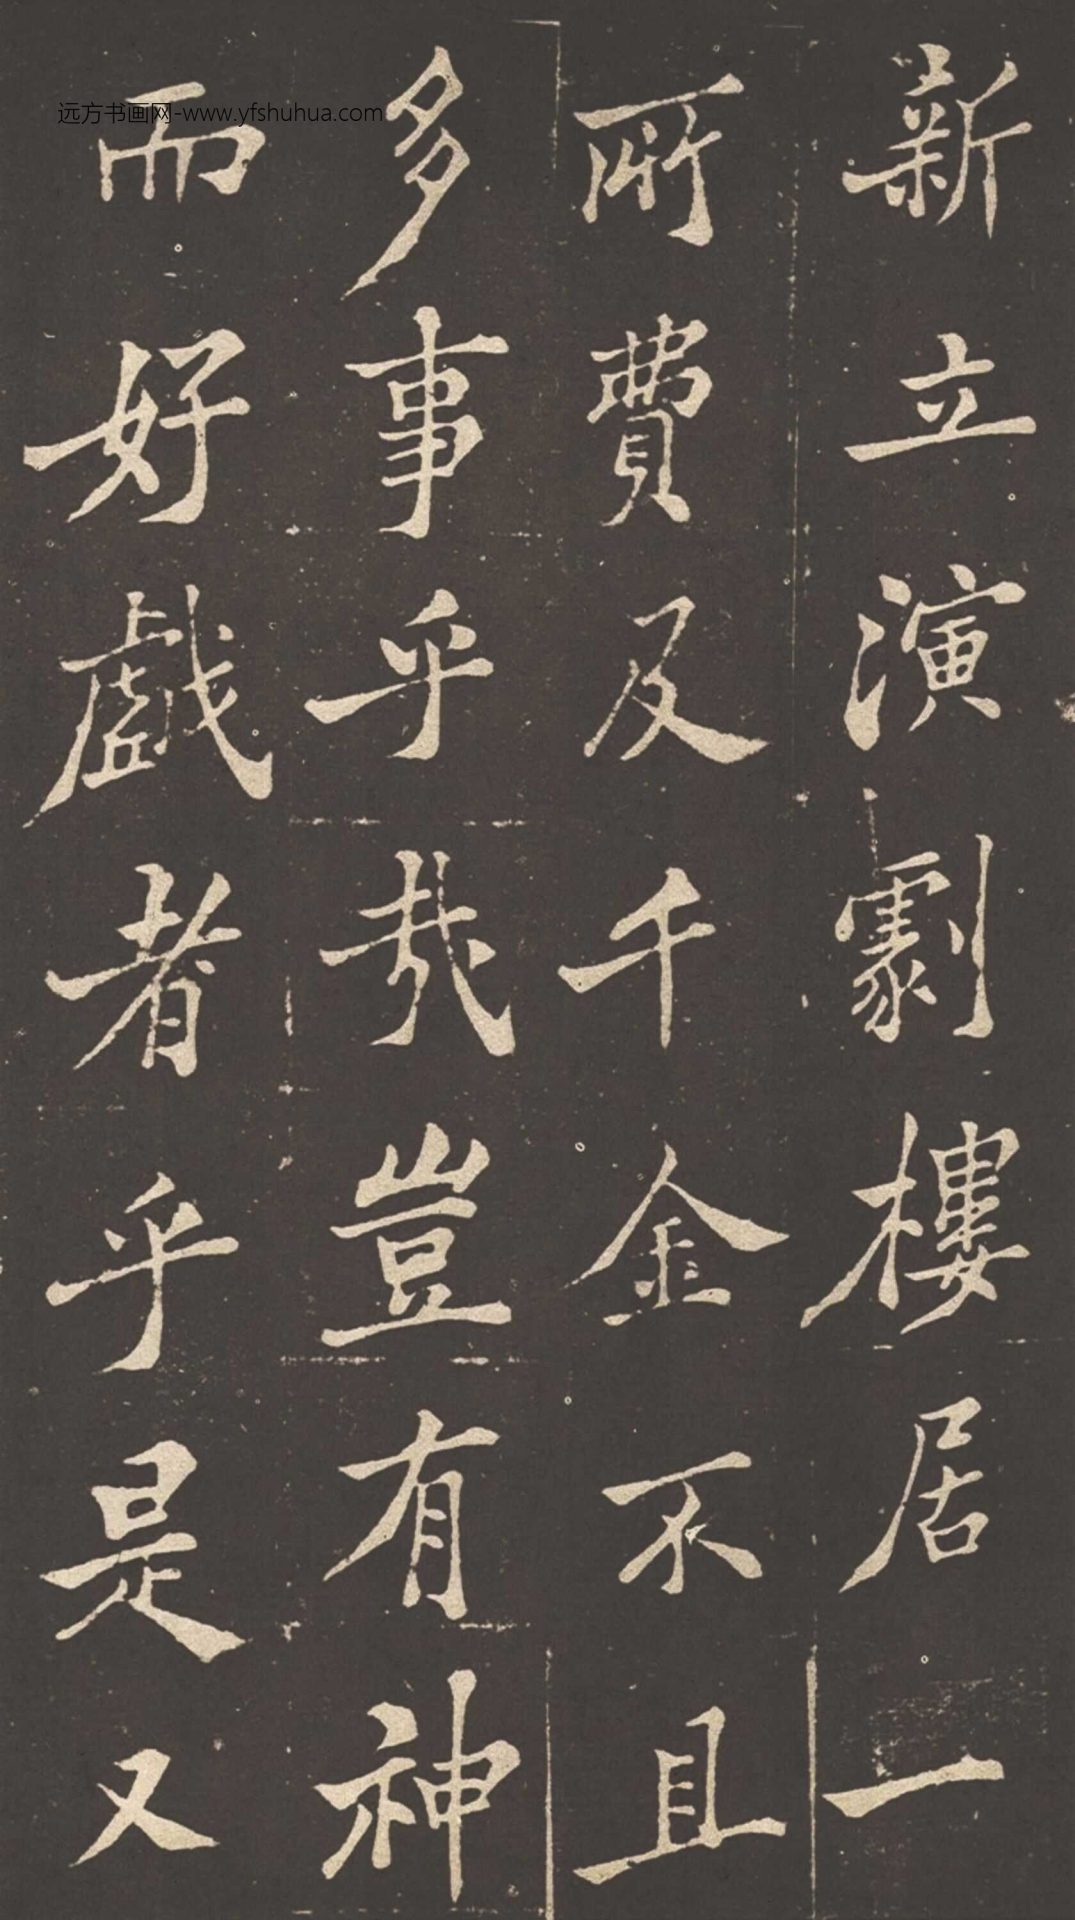 新立演劇樓居一
所費及千金不且
多事乎哉豈有神
而好戲者乎是又
远方书画网-www.yfshuhua.com